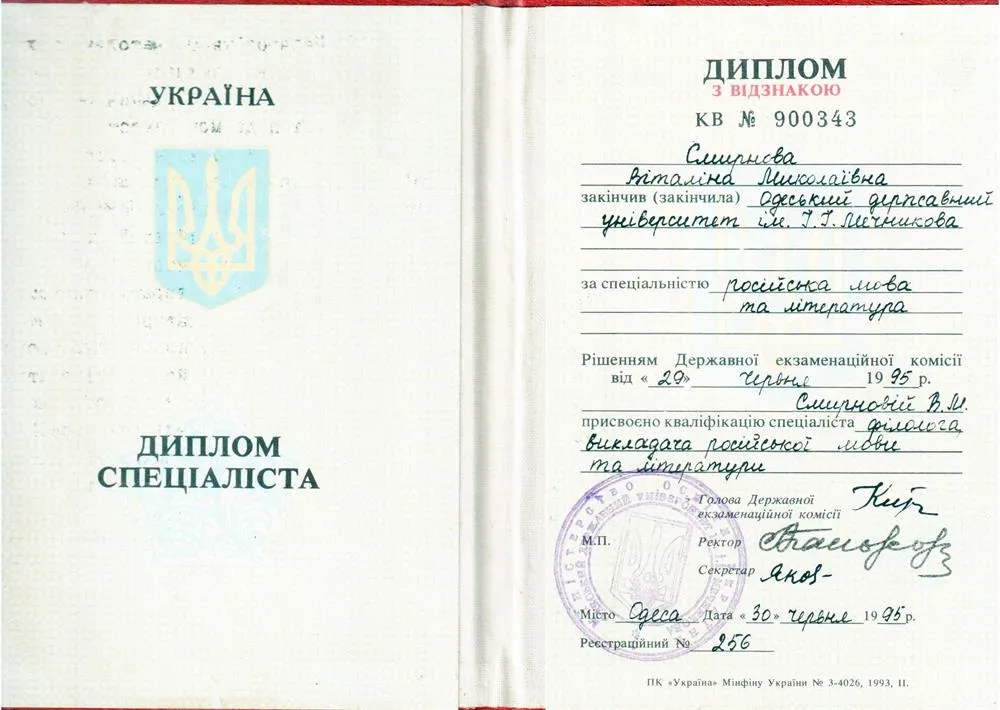 УКРАЇНА
ДИПЛОМ
СПЕЦІАЛІСТА
ДИПЛОМ
З ВІДЗНАКОЮ
КВ № 900343
Смирнова
Віталіна Миколаївна
закінчив (закінчила) Одеський державний
університет ім. І.І. Мечникова
за спеціальністю російська мова
та література
Рішенням Державної екзаменаційної комісії
від «29» червня 1995 р.
Смирновій В.М.
присвоєно кваліфікацію спеціаліста філолога,
викладача російської мови
та літератури
Голова Державної
екзаменаційної комісії
М.П.
Ректор
Секретар
Місто Одеса Дата «30» червня 1995 р.
Реєстраційний № 256
ПК «Україна» Мінфіну України № 3-4026, 1993, II.